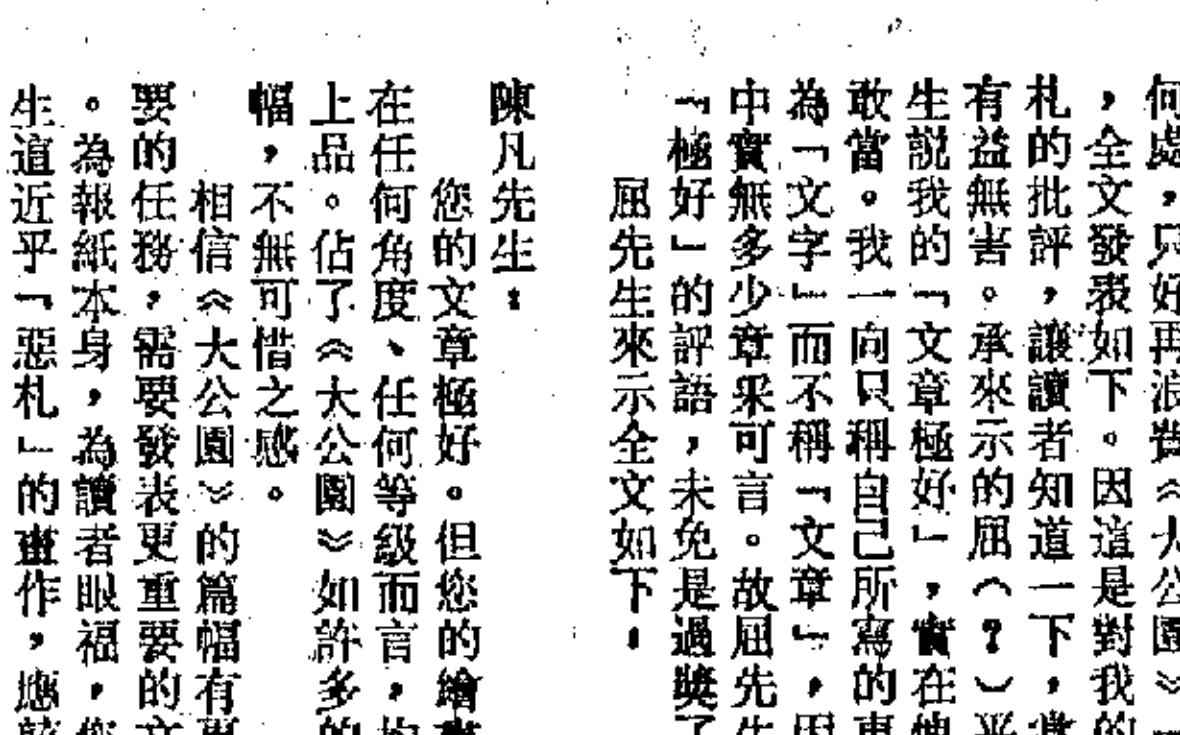 何處，只好再浪費《大公園》
，全文發表如下。因這是對我的
札的批評，讓讀者知道一下，當
有益無害。承來示的屈（？）平
生説我的「文章極好」，實在
敢當。我一向只稱自己所寫的東
為「文字」而不稱「文章」，因
中實無多少章采可言。故屈先生
「極好」的評語，未免是過獎了
屈先生來示全文如下：
陳凡先生：
您的文章極好。但您的繪畫
在任何角度、任何等級而言，均
上品。佔了《大公園》如許多的
幅，不無可惜之感。
相信《大公園》的篇幅有更
要的任務，需要發表更重要的文
。為報紙本身，為讀者眼福，您
生這近乎「惡札」的畫作，應該